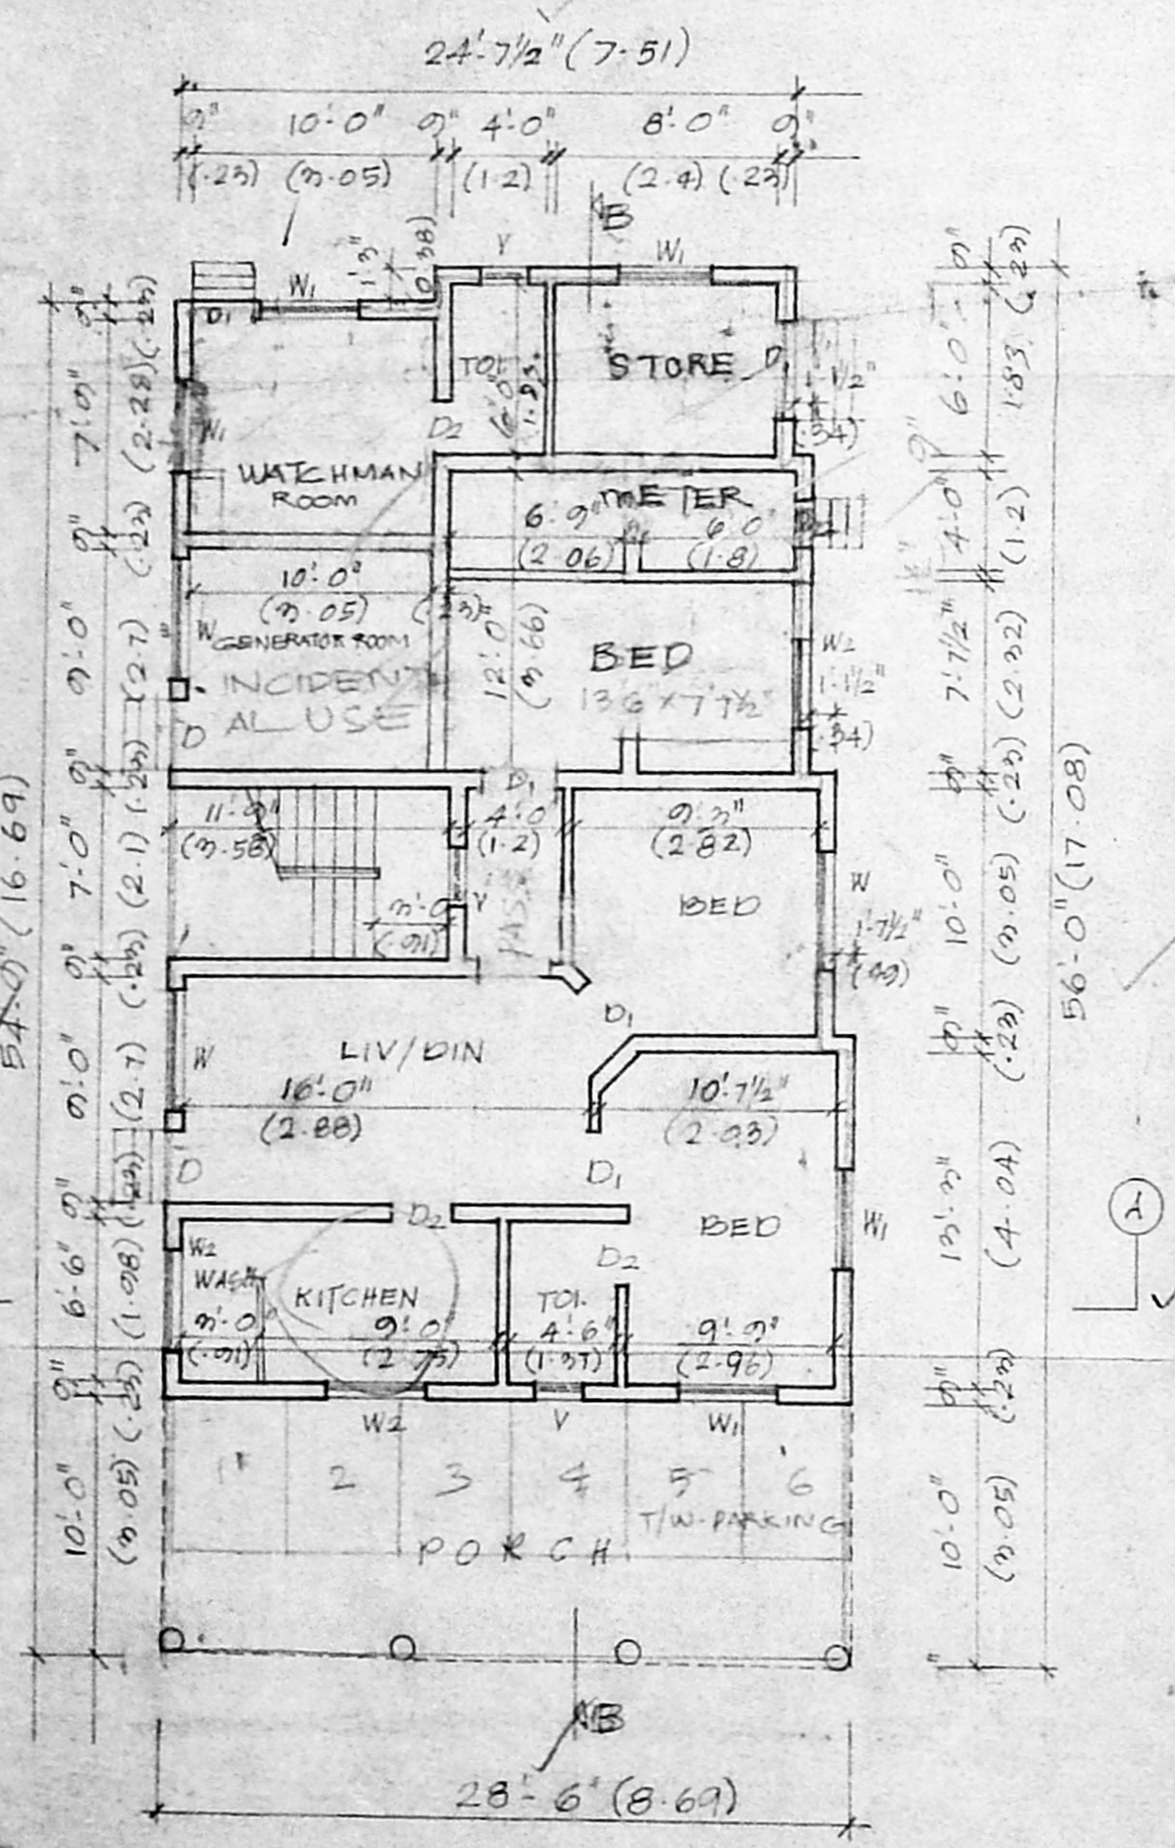 24'-7½" (7.51)
9" 10'-0" 9" 4'-0" 8'-0" 9"
(.23) (3.05) (1.2) (2.4) (.23)
B
V W1
W1 1'.3" 0.38
D1
TOI. STORE D
6'-0" 1.83
1'-1½"
(.34)
W1 D2
WATCHMAN
ROOM
METER
6'-9" 6'-0"
(2.06) (1.8)
10'-0"
(3.05) (.23)
W GENERATOR ROOM
INCIDENT
AL USE
D
12'-0" (3.66)
BED
13'6" x 7'7½"
W2
1'-1½"
(.34)
D1
11'-9" 4'-0 9'-3"
(3.58) (1.2) (2.82)
PASS
BED
W
3'-0 V
(.91)
1'-7½"
(.49)
D1
W LIV/DIN
16'-0" 10'-7½"
(2.88) (2.03)
D D1
D2 BED W1
W2 D2
WASH KITCHEN TOI.
3'-0 9'-0" 4'-6" 9'-9"
(.91) (2.75) (1.37) (2.96)
W2 V W1
1 2 3 4 5 6
T/W-PARKING
PORCH
B
28'-6" (8.69)
54'-9" (16.69)
9" 7'-9" 9" 9'-0" 9" 7'-0" 9" 9'-0" 9" 6'-6" 9" 10'-0"
(.23) (2.28) (.23) (2.7) (.23) (2.1) (.23) (2.7) (.23) (1.98) (.23) (3.05)
9" 6'-0" 9" 4'-0" 7'-7½" 9" 10'-0" 9" 13'-3" 9" 10'-0"
(.23) 1.83 (1.2) (2.32) (.23) (3.05) (.23) (4.04) (.23) (3.05)
56'-0" (17.08)